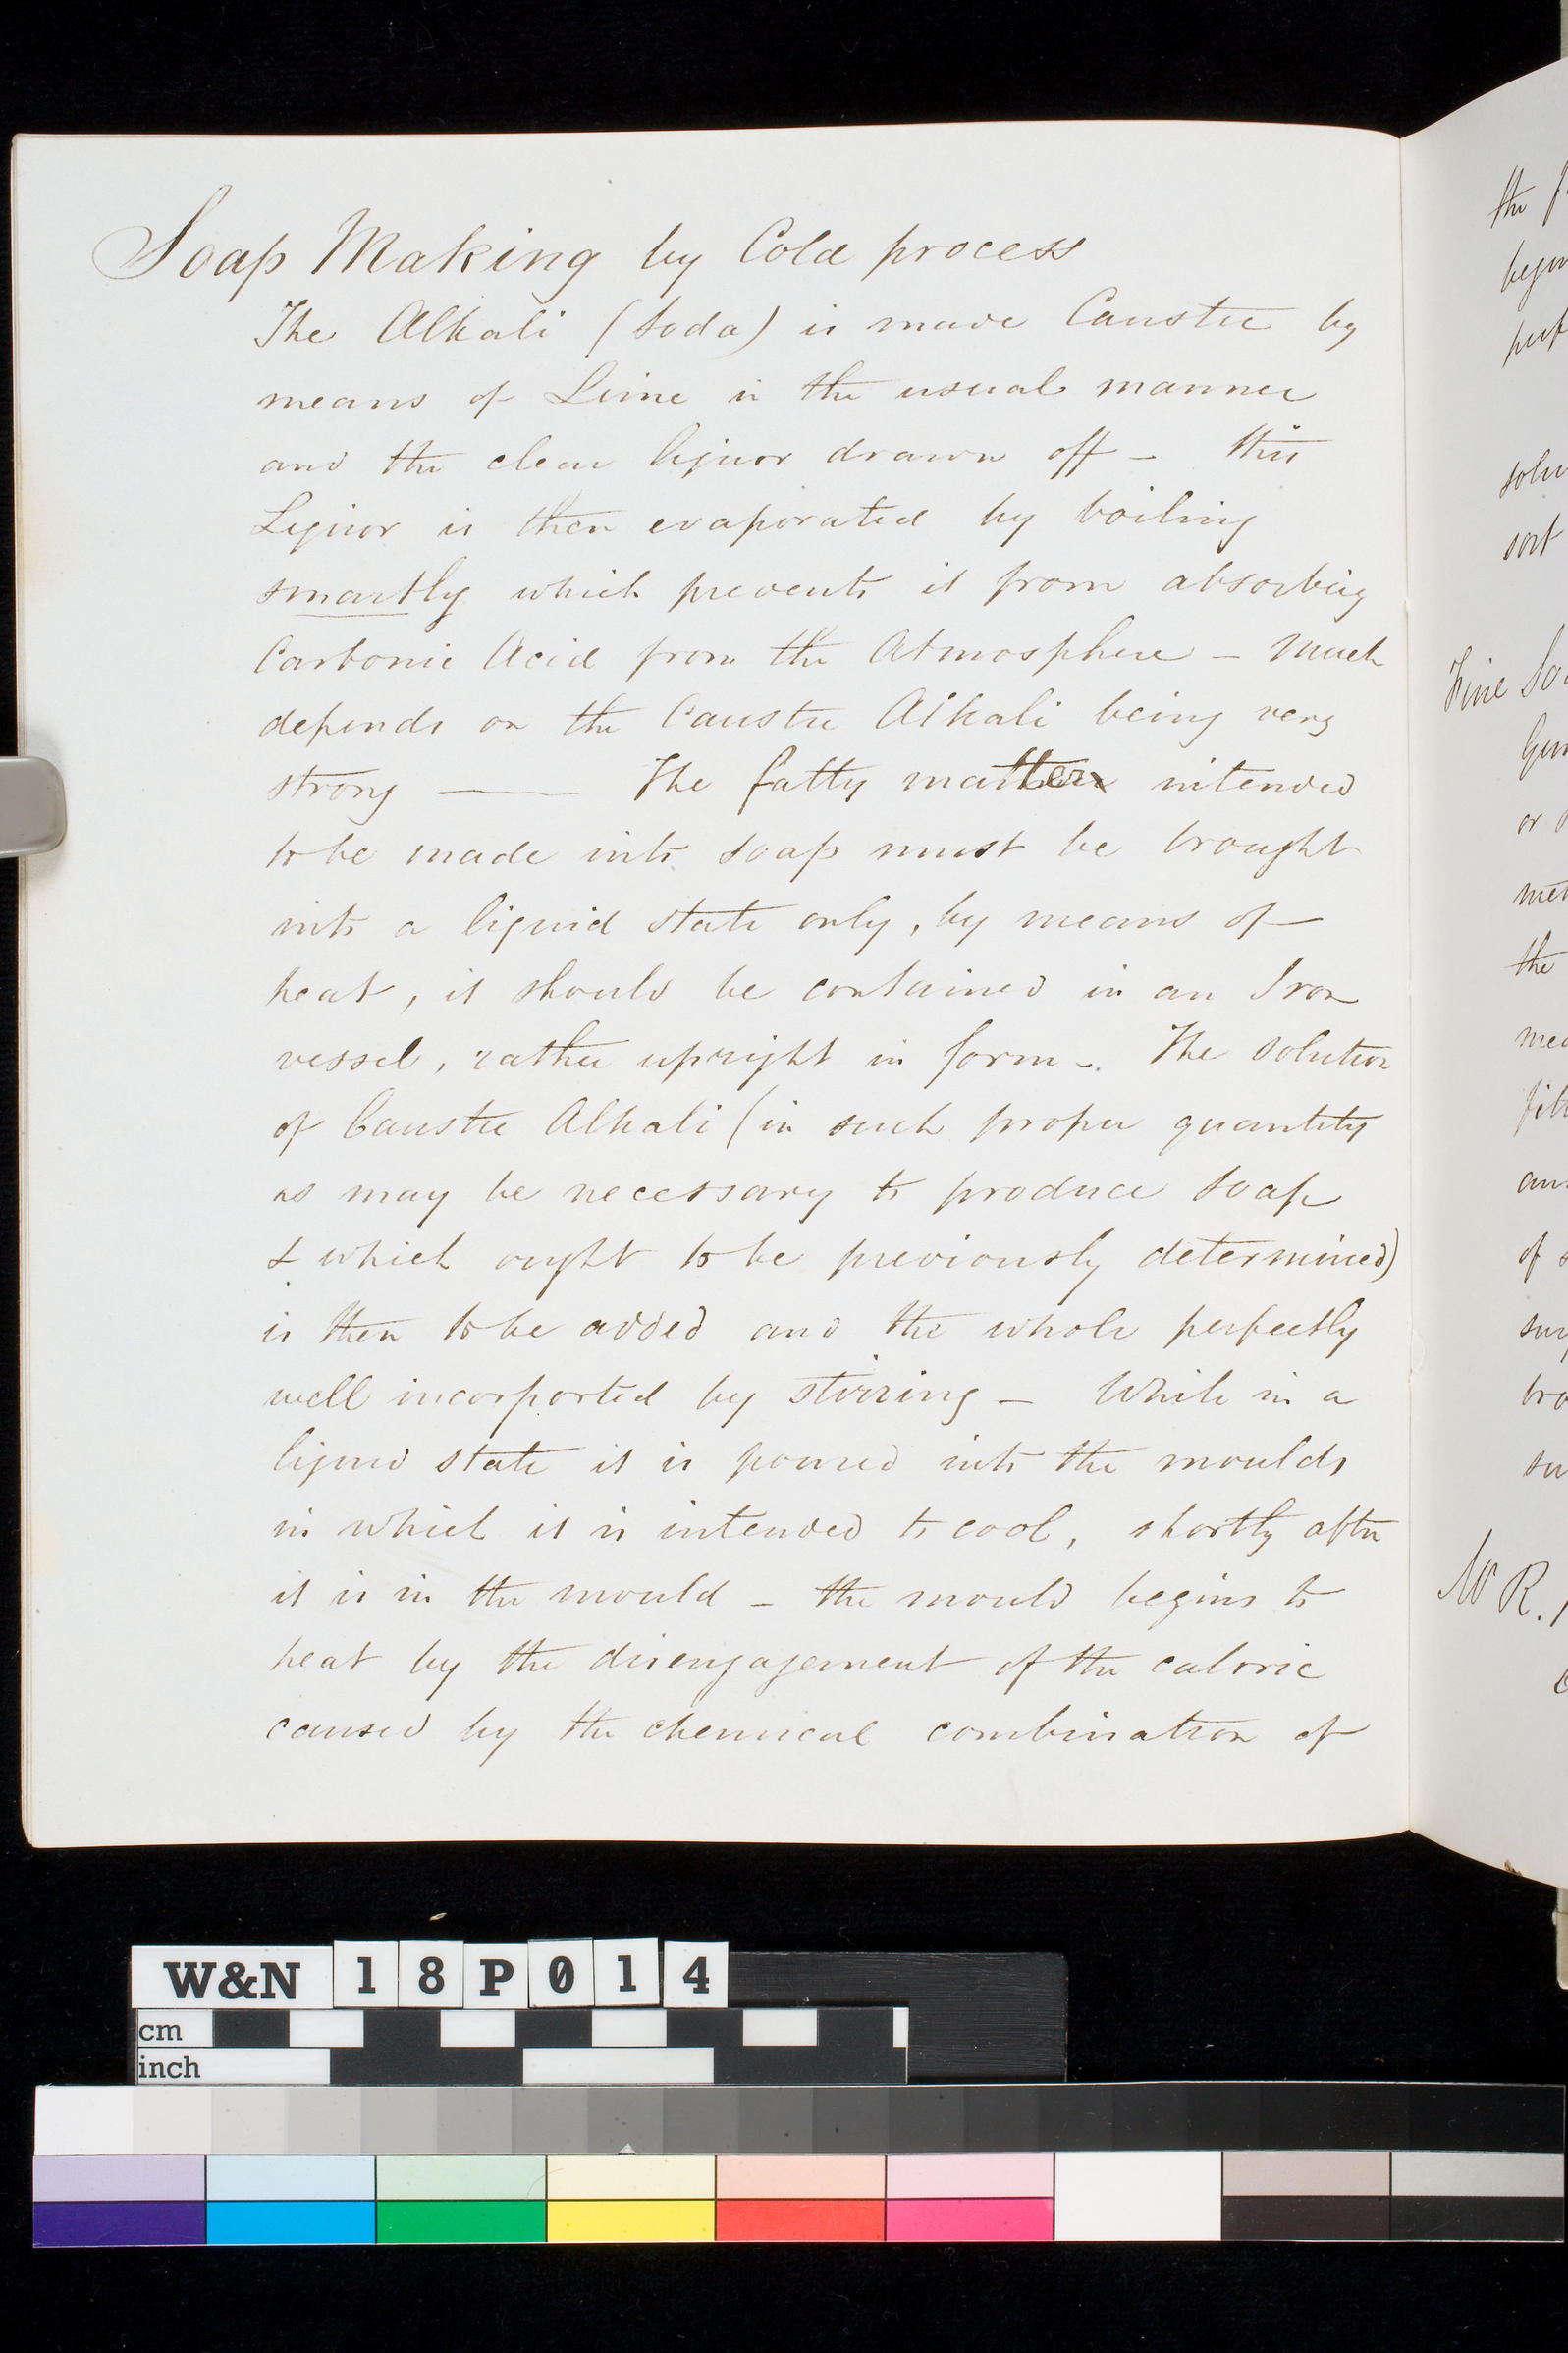 Soap Making by Cold process
The Alkali (Soda) is made Caustic by
means of Lime in the usual manner
and the clear liquor drawn off – this
Liquor is then evaporated by boiling
smartly which prevents it from absorbing
Carbonic Acid from the Atmosphere – Much
depends on the Caustic Alkali being very
strong —— The fatty matter intended
to be made into soap must be brought
into a liquid state only, by means of
heat, it should be contained in an Iron
vessel, rather upright in form –. The solution
of Caustic Alkali (in such proper quantity
as may be necessary to produce Soap
& which ought to be previously determined)
is then to be added and the whole perfectly
well incorported by stirring – While in a
liquid state it is poured into the moulds
in which it is intended to cool, shortly after
it is in the mould – the mould begins to
heat by the disengagement of the caloric
caused by the chemical combination of
the
solu
sort
Fine So
or
the
of
W R.
W&N 18P014
cm
inch